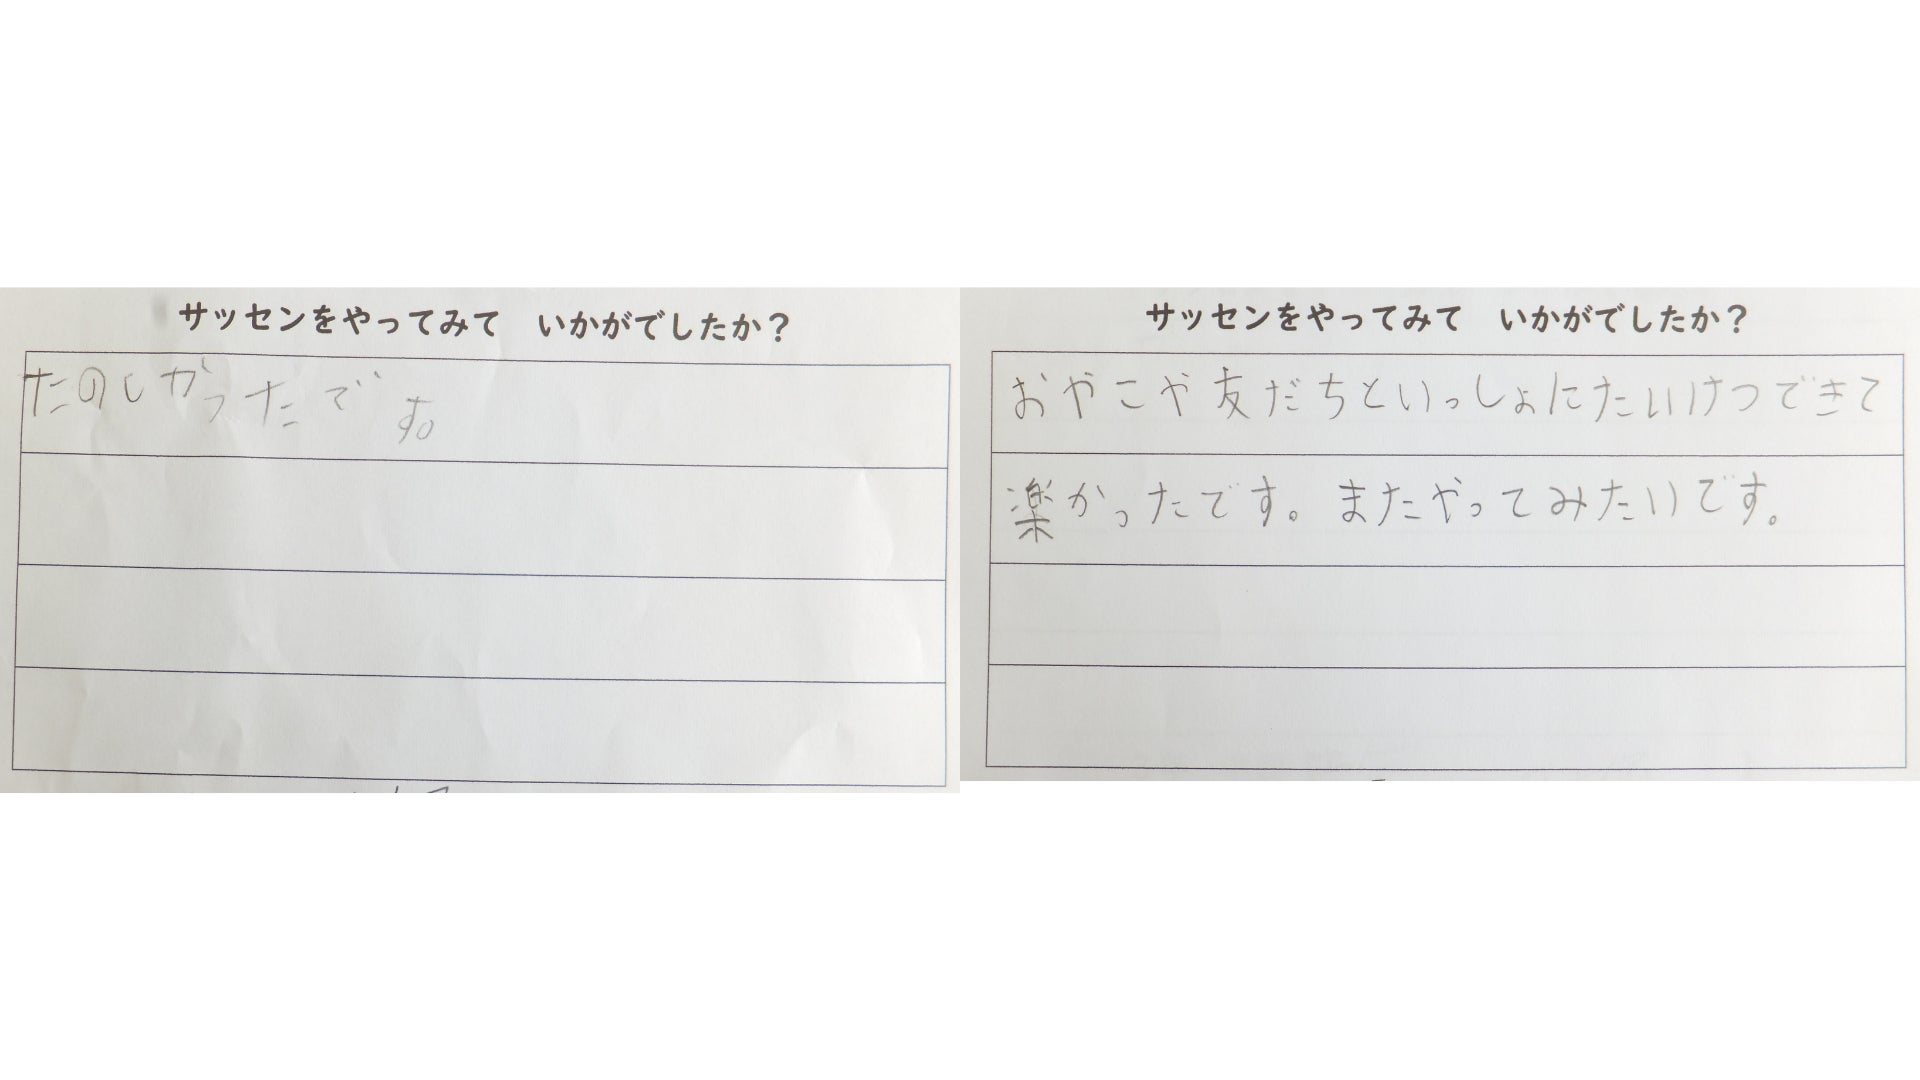 サッセンをやってみて いかがでしたか?
たのしかったです。
サッセンをやってみて いかがでしたか?
おやこや友だちといっしょにたいけつできて
楽かったです。またやってみたいです。